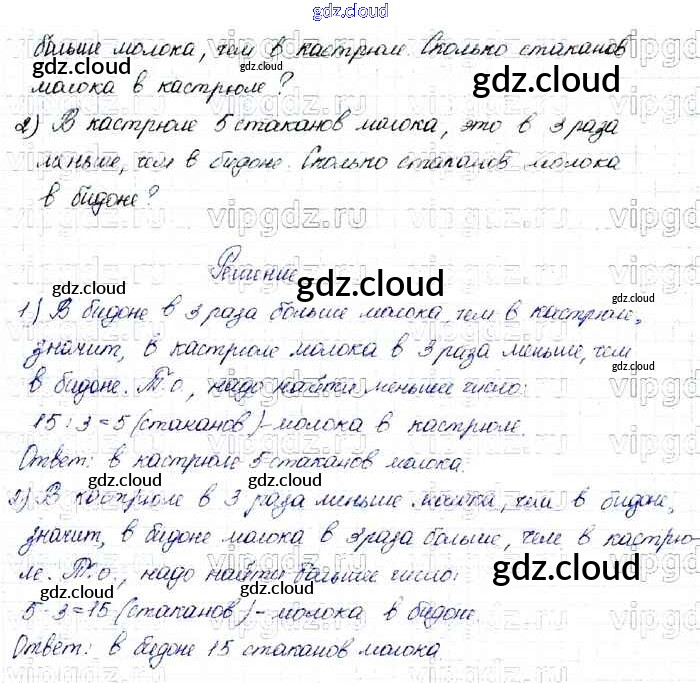 gdz.cloud
больше молока, чем в кастрюле. Сколько стаканов
молока в кастрюле?
2) В кастрюле 5 стаканов молока, это в 3 раза
меньше, чем в бидоне. Сколько стаканов молока
в бидоне?
Решение
1) В бидоне в 3 раза больше молока, чем в кастрюле,
значит, в кастрюле молока в 3 раза меньше, чем
в бидоне. Т.о., надо найти меньшее число:
15 : 3 = 5 (стаканов) - молока в кастрюле.
Ответ: в кастрюле 5 стаканов молока.
2) В кастрюле в 3 раза меньше молока, чем в бидоне,
значит, в бидоне молока в 3 раза больше, чем в кастрю-
ле. Т.о., надо найти большее число:
5 · 3 = 15 (стаканов) - молока в бидоне.
Ответ: в бидоне 15 стаканов молока.